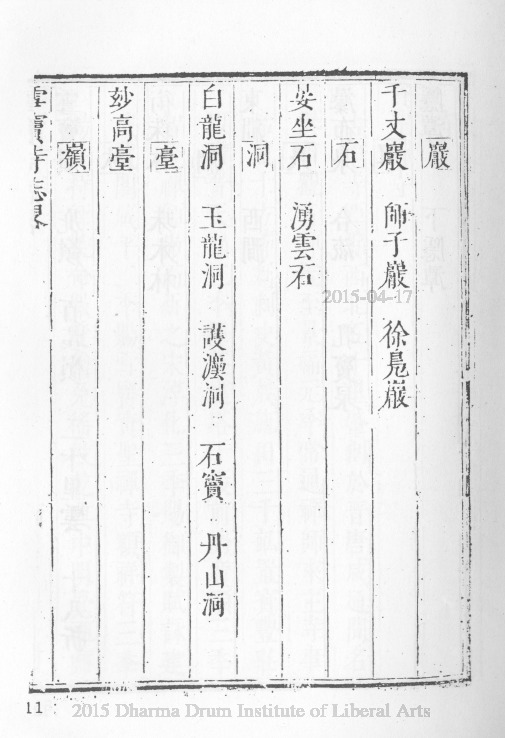 巖
千丈巖 師子巖 徐鳧巖
石
晏坐石 湧雲石
洞
白龍洞 玉龍洞 石竇 丹山洞
臺
玅高臺
嶺
雪竇寺志畧
2015-04-17
11
2015 Dharma Drum Institute of Liberal Arts